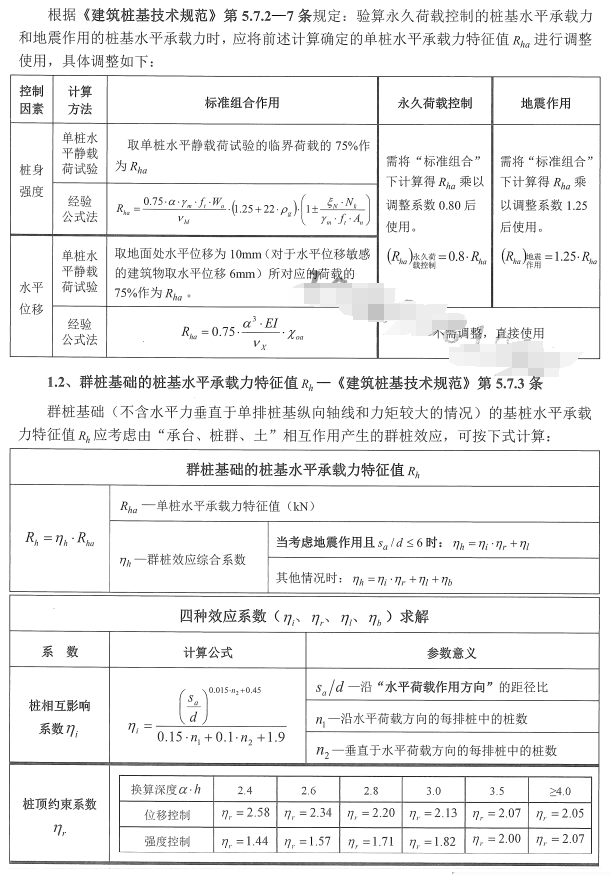 根据《建筑桩基技术规范》第 5.7.2—7 条规定：验算永久荷载控制的桩基水平承载力
和地震作用的桩基水平承载力时，应将前述计算确定的单桩水平承载力特征值 Rha 进行调整
使用，具体调整如下：
控制因素 计算方法 标准组合作用 永久荷载控制 地震作用
桩身强度
单桩水平静载荷试验
取单桩水平静载荷试验的临界荷载的 75%作
为 Rha
经验公式法
Rha = 0.75·α·γm·ft·W0 / νM ·(1.25+22·ρg)·(1± ξN·Nk / γm·ft·An)
需将“标准组合”
下计算得 Rha 乘以
调整系数 0.80 后
使用。
(Rha)永久荷载控制 = 0.8·Rha
需将“标准组合”
下计算得 Rha 乘
以调整系数 1.25
后使用。
(Rha)地震作用 = 1.25·Rha
水平位移
单桩水平静载荷试验
取地面处水平位移为 10mm（对于水平位移敏感
的建筑物取水平位移 6mm）所对应的荷载的
75%作为 Rha 。
经验公式法
Rha = 0.75· α³·EI / νX ·χoa
不需调整，直接使用
1.2、群桩基础的桩基水平承载力特征值 Rh —《建筑桩基技术规范》第 5.7.3 条
群桩基础（不含水平力垂直于单排桩基纵向轴线和力矩较大的情况）的基桩水平承载
力特征值 Rh 应考虑由“承台、桩群、土”相互作用产生的群桩效应，可按下式计算：
群桩基础的桩基水平承载力特征值 Rh
Rh = ηh · Rha
Rha —单桩水平承载力特征值（kN）
ηh —群桩效应综合系数
当考虑地震作用且 sa / d ≤ 6 时：ηh = ηi · ηr + ηl
其他情况时：ηh = ηi · ηr + ηl + ηb
四种效应系数（ηi、ηr、ηl、ηb）求解
系 数 计算公式 参数意义
桩相互影响
系数 ηi
ηi = (sa/d)^(0.015·n2+0.45) / 0.15·n1+0.1·n2+1.9
sa/d —沿“水平荷载作用方向”的距径比
n1 —沿水平荷载方向的每排桩中的桩数
n2 —垂直于水平荷载方向的每排桩中的桩数
桩顶约束系数
ηr
换算深度 α·h 2.4 2.6 2.8 3.0 3.5 ≥4.0
位移控制 ηr = 2.58 ηr = 2.34 ηr = 2.20 ηr = 2.13 ηr = 2.07 ηr = 2.05
强度控制 ηr = 1.44 ηr = 1.57 ηr = 1.71 ηr = 1.82 ηr = 2.00 ηr = 2.07